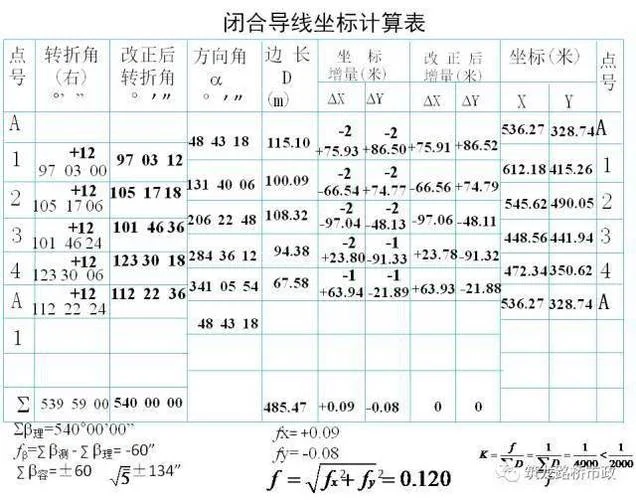 闭合导线坐标计算表
点号 转折角(右) ° ′ ″ 改正后转折角 ° ′ ″ 方向角 α ° ′ ″ 边 长 D (m) 坐 标 增量(米) 改 正 后 增量(米) 坐标(米) 点号
ΔX ΔY ΔX ΔY X Y
A 536.27 328.74 A
48 43 18 115.10 -2 +75.93 -2 +86.50 +75.91 +86.52
1 +12 97 03 00 97 03 12 612.18 415.26 1
131 40 06 100.09 -2 -66.54 -2 +74.77 -66.56 +74.79
2 +12 105 17 06 105 17 18 545.62 490.05 2
206 22 48 108.32 -2 -97.04 -2 -48.13 -97.06 -48.11
3 +12 101 46 24 101 46 36 448.56 441.94 3
284 36 12 94.38 -2 +23.80 -1 -91.33 +23.78 -91.32
4 +12 123 30 06 123 30 18 472.34 350.62 4
341 05 54 67.58 -1 +63.94 -1 -21.89 +63.93 -21.88
A +12 112 22 24 112 22 36 536.27 328.74 A
48 43 18
1
Σ 539 59 00 540 00 00 485.47 +0.09 -0.08 0 0
Σβ理=540°00′00″ fx=+0.09
fβ=Σβ测 - Σβ理= -60″ fy=-0.08
Σβ容=±60 √5 ±134″ f = √fx²+fy² = 0.120
K = f/ΣD = 1/ΣD/f = 1/4000 < 1/2000
筑龙路桥市政